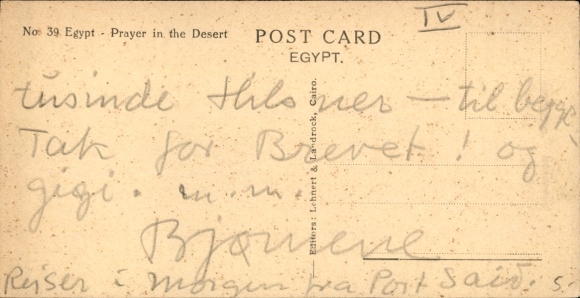 IV
No. 39 Egypt - Prayer in the Desert
POST CARD
EGYPT.
tusinde Hilsner — til begge
Tak for Brevet ! og
gigi . m. m.
Bjørnene
Rejser i morgen fra Port Said. s.
Editors: Lehnert & Landrock, Cairo.